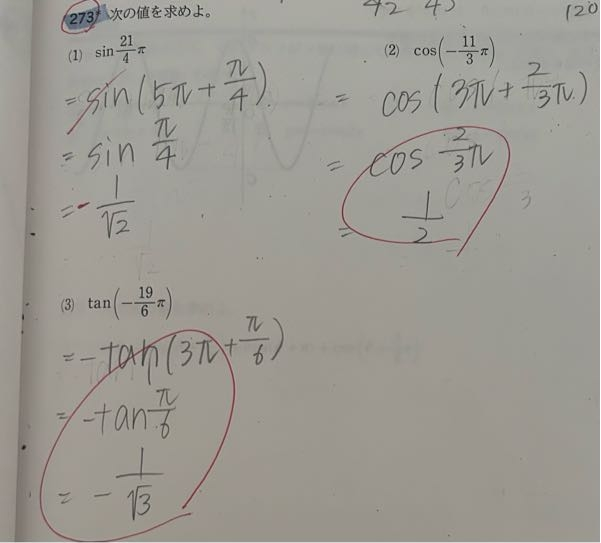 42 45
120
273 次の値を求めよ。
(1) sin 21/4 π
= sin(5π + π/4)
= sin π/4
= - 1/√2
(2) cos(-11/3 π)
= cos(3π + 2/3 π)
= cos 2/3 π
= 1/2
(3) tan(-19/6 π)
= -tan(3π + π/6)
= -tan π/6
= - 1/√3